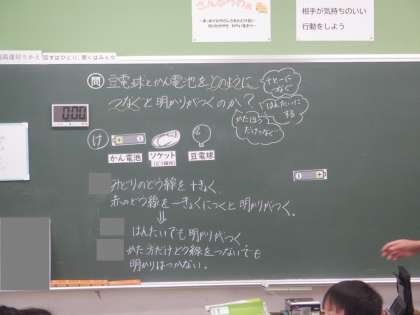 さんぽうりゅう
相手が気持ちのいい
行動をしよう
話すはひとり、聞くはみんな
問 豆電球とかん電池をどのように
つなぐと明かりがつくのか？
はんたいに
する
かたほう
だけつなぐ
0:00
け
かん電池
ソケット
(どう線付)
豆電球
みどりのどう線を+きょく
赤のどう線を−きょくにつくと明かりがつく。
はんたいでも明かりがつく
かた方だけどう線をつないでも
明かりはつかない。